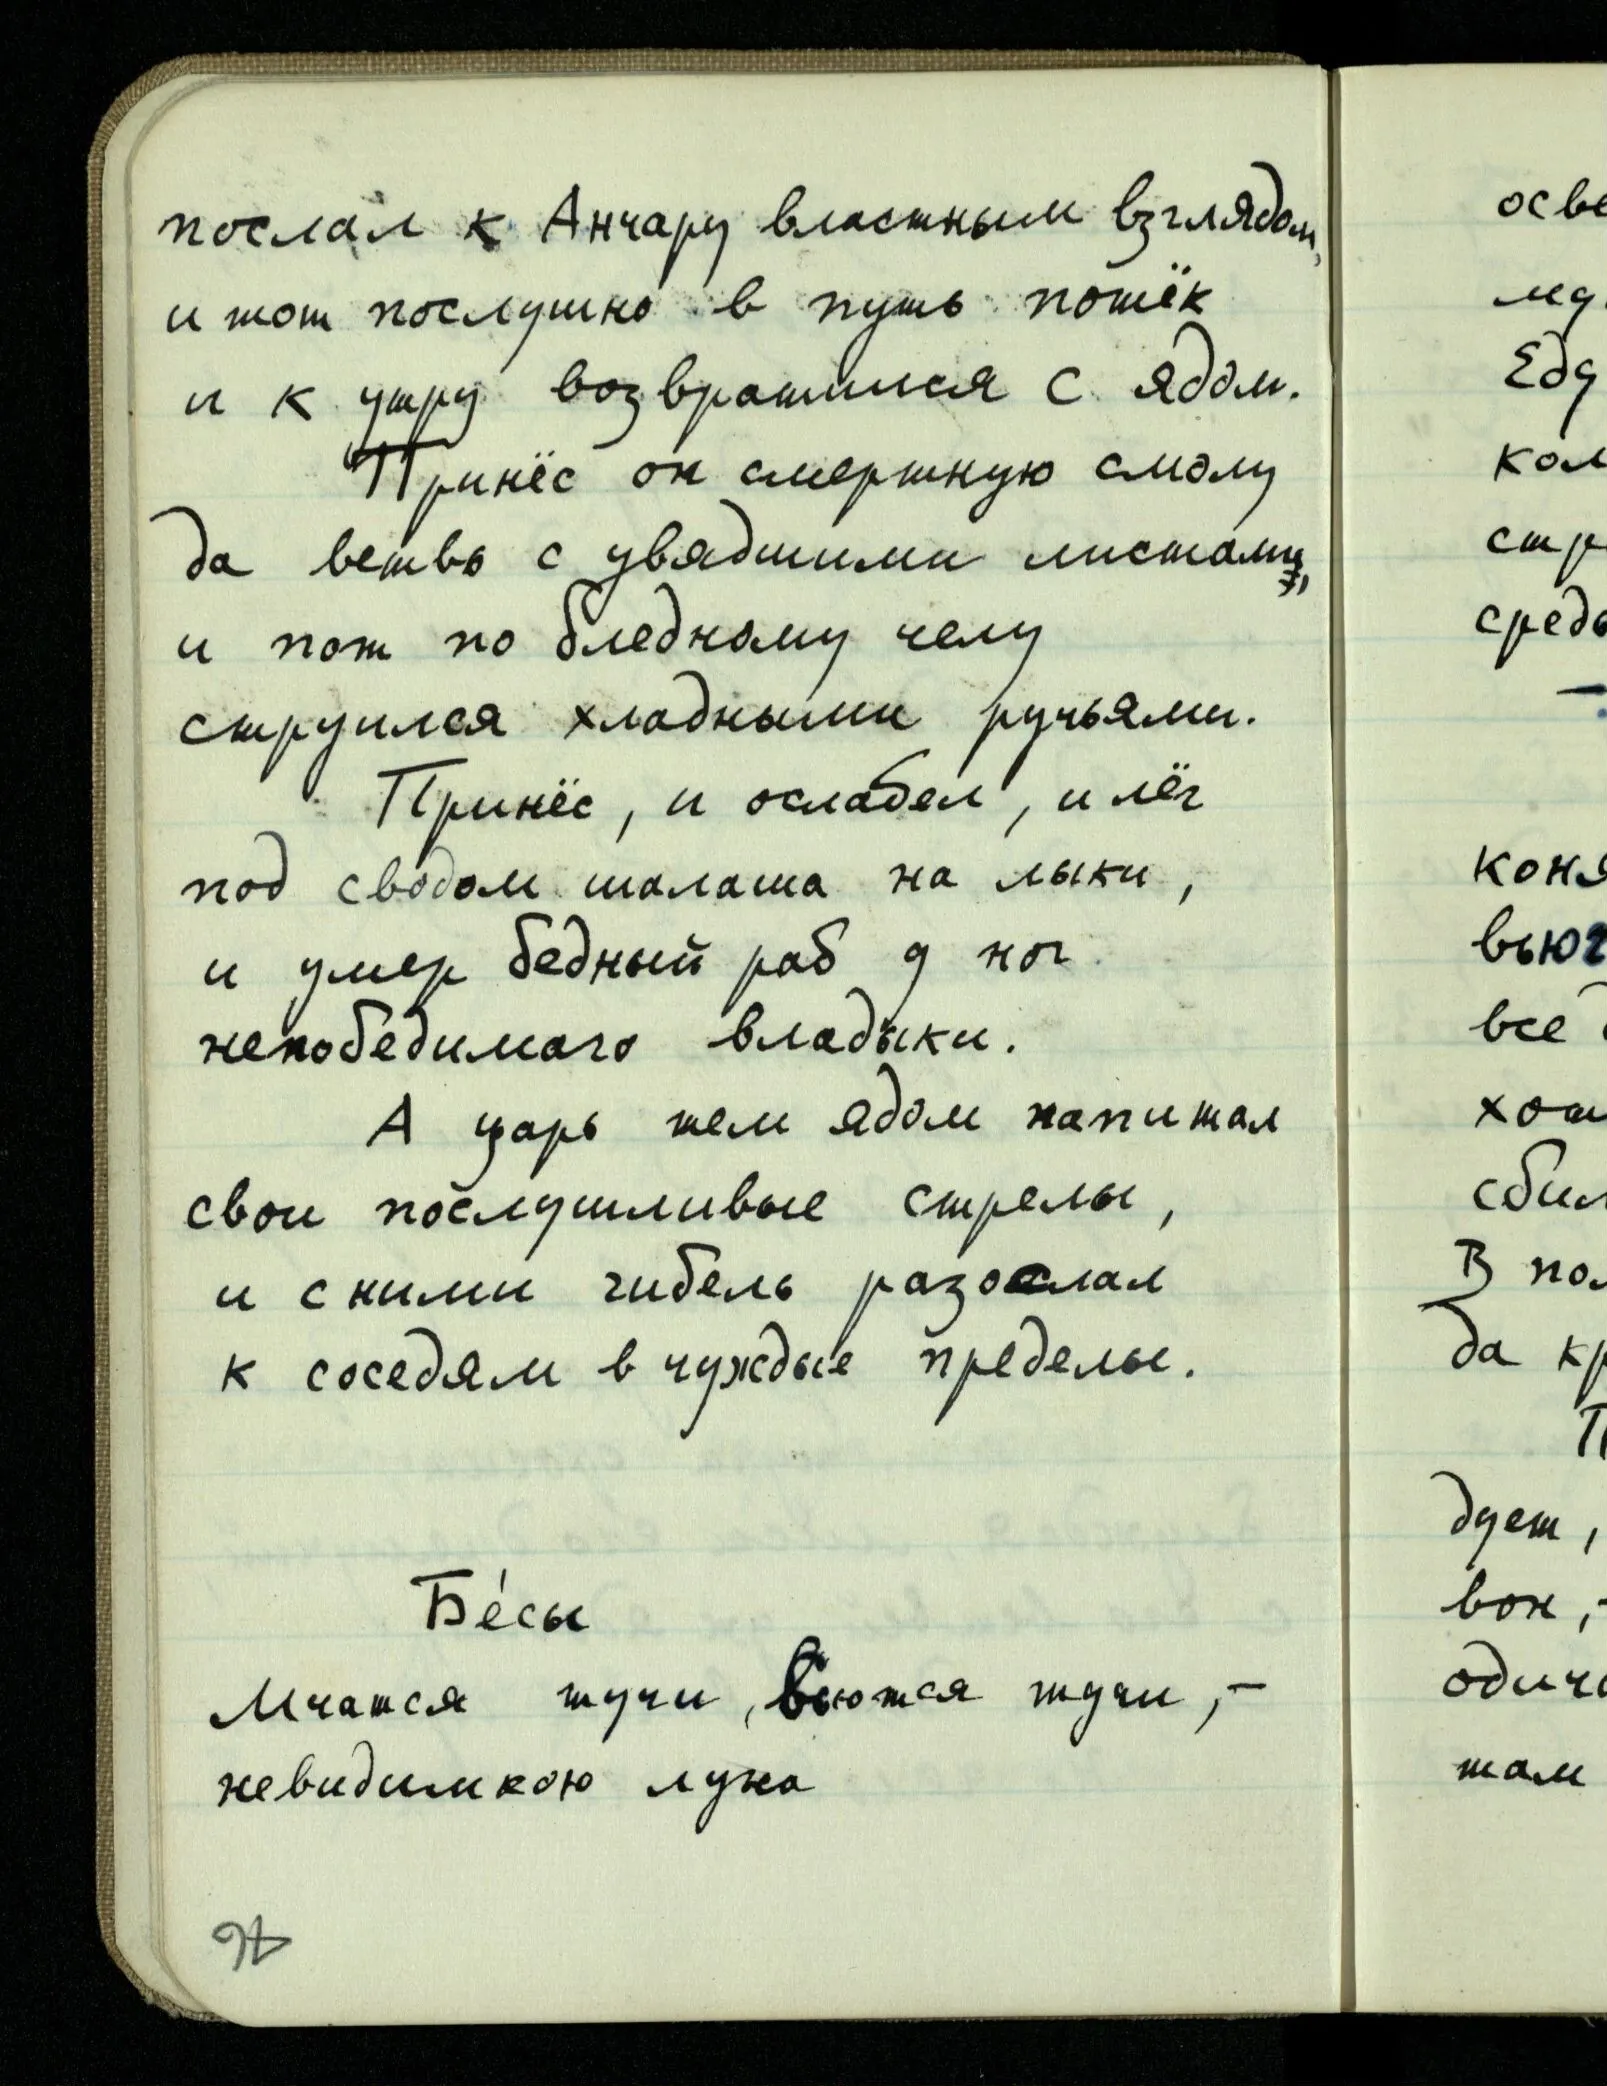 послал к Анчару властным взглядом,
и тот послушно в путь потёк
и к утру возвратился с ядом.
Принёс он смертную смолу
да ветвь с увядшими листами,
и пот по бледному челу
струился хладными ручьями.
Принёс, и ослабел, и лёг
под сводом шалаша на лыки,
и умер бедный раб у ног
непобедимого владыки.
А царь тем ядом напитал
свои послушливые стрелы,
и с ними гибель разослал
к соседям в чуждые пределы.
Бе́сы
Мчатся тучи, вьются тучи,-
невидимкою луна
осве
Еду
кол
стр
средь
коня
вьюг
все
хот
сбил
В пол
да кр
П
дует,
вон,-
одича
там